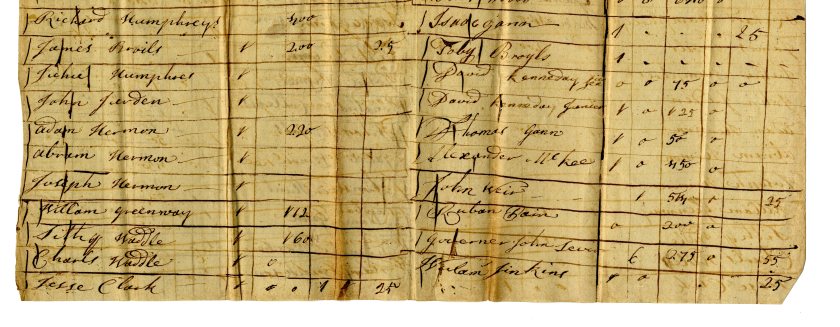 Richard Humphreys 400
James Broils 1 200 25
Humphres 1
John 1
adam Hermon 1 220
abram Hermon 1
Joseph Hermon 1
William Greenway 1 112
Waddle 1 160
Charls Waddle 1 0
Jesse Clark 1 0 0 1 1 25
Isaac Gann 1 . . . 25
Toby Broyls 1 . . . .
David Kenneday 0 0 75 0 0
David Kenneday Junier 1 0 125 0
Thomas Gann 1 0 50 0
Alexander McKee 1 0 450 0
John Weir 1 0 25
Ruban 0 200 0
Governer John Sevier 6 275 0 55
William Jinkins 1 0 25